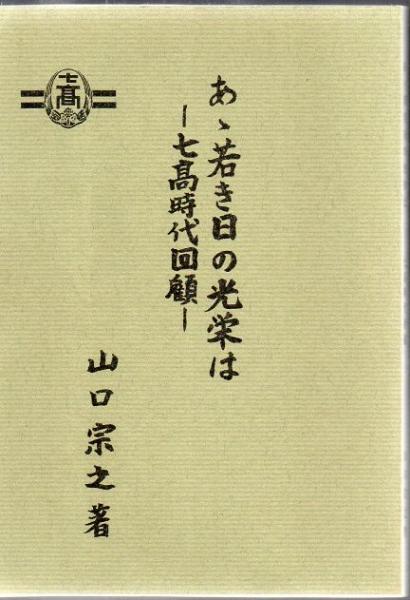 七高
あゝ若き日の光栄は
―七高時代回顧―
山口宗之著